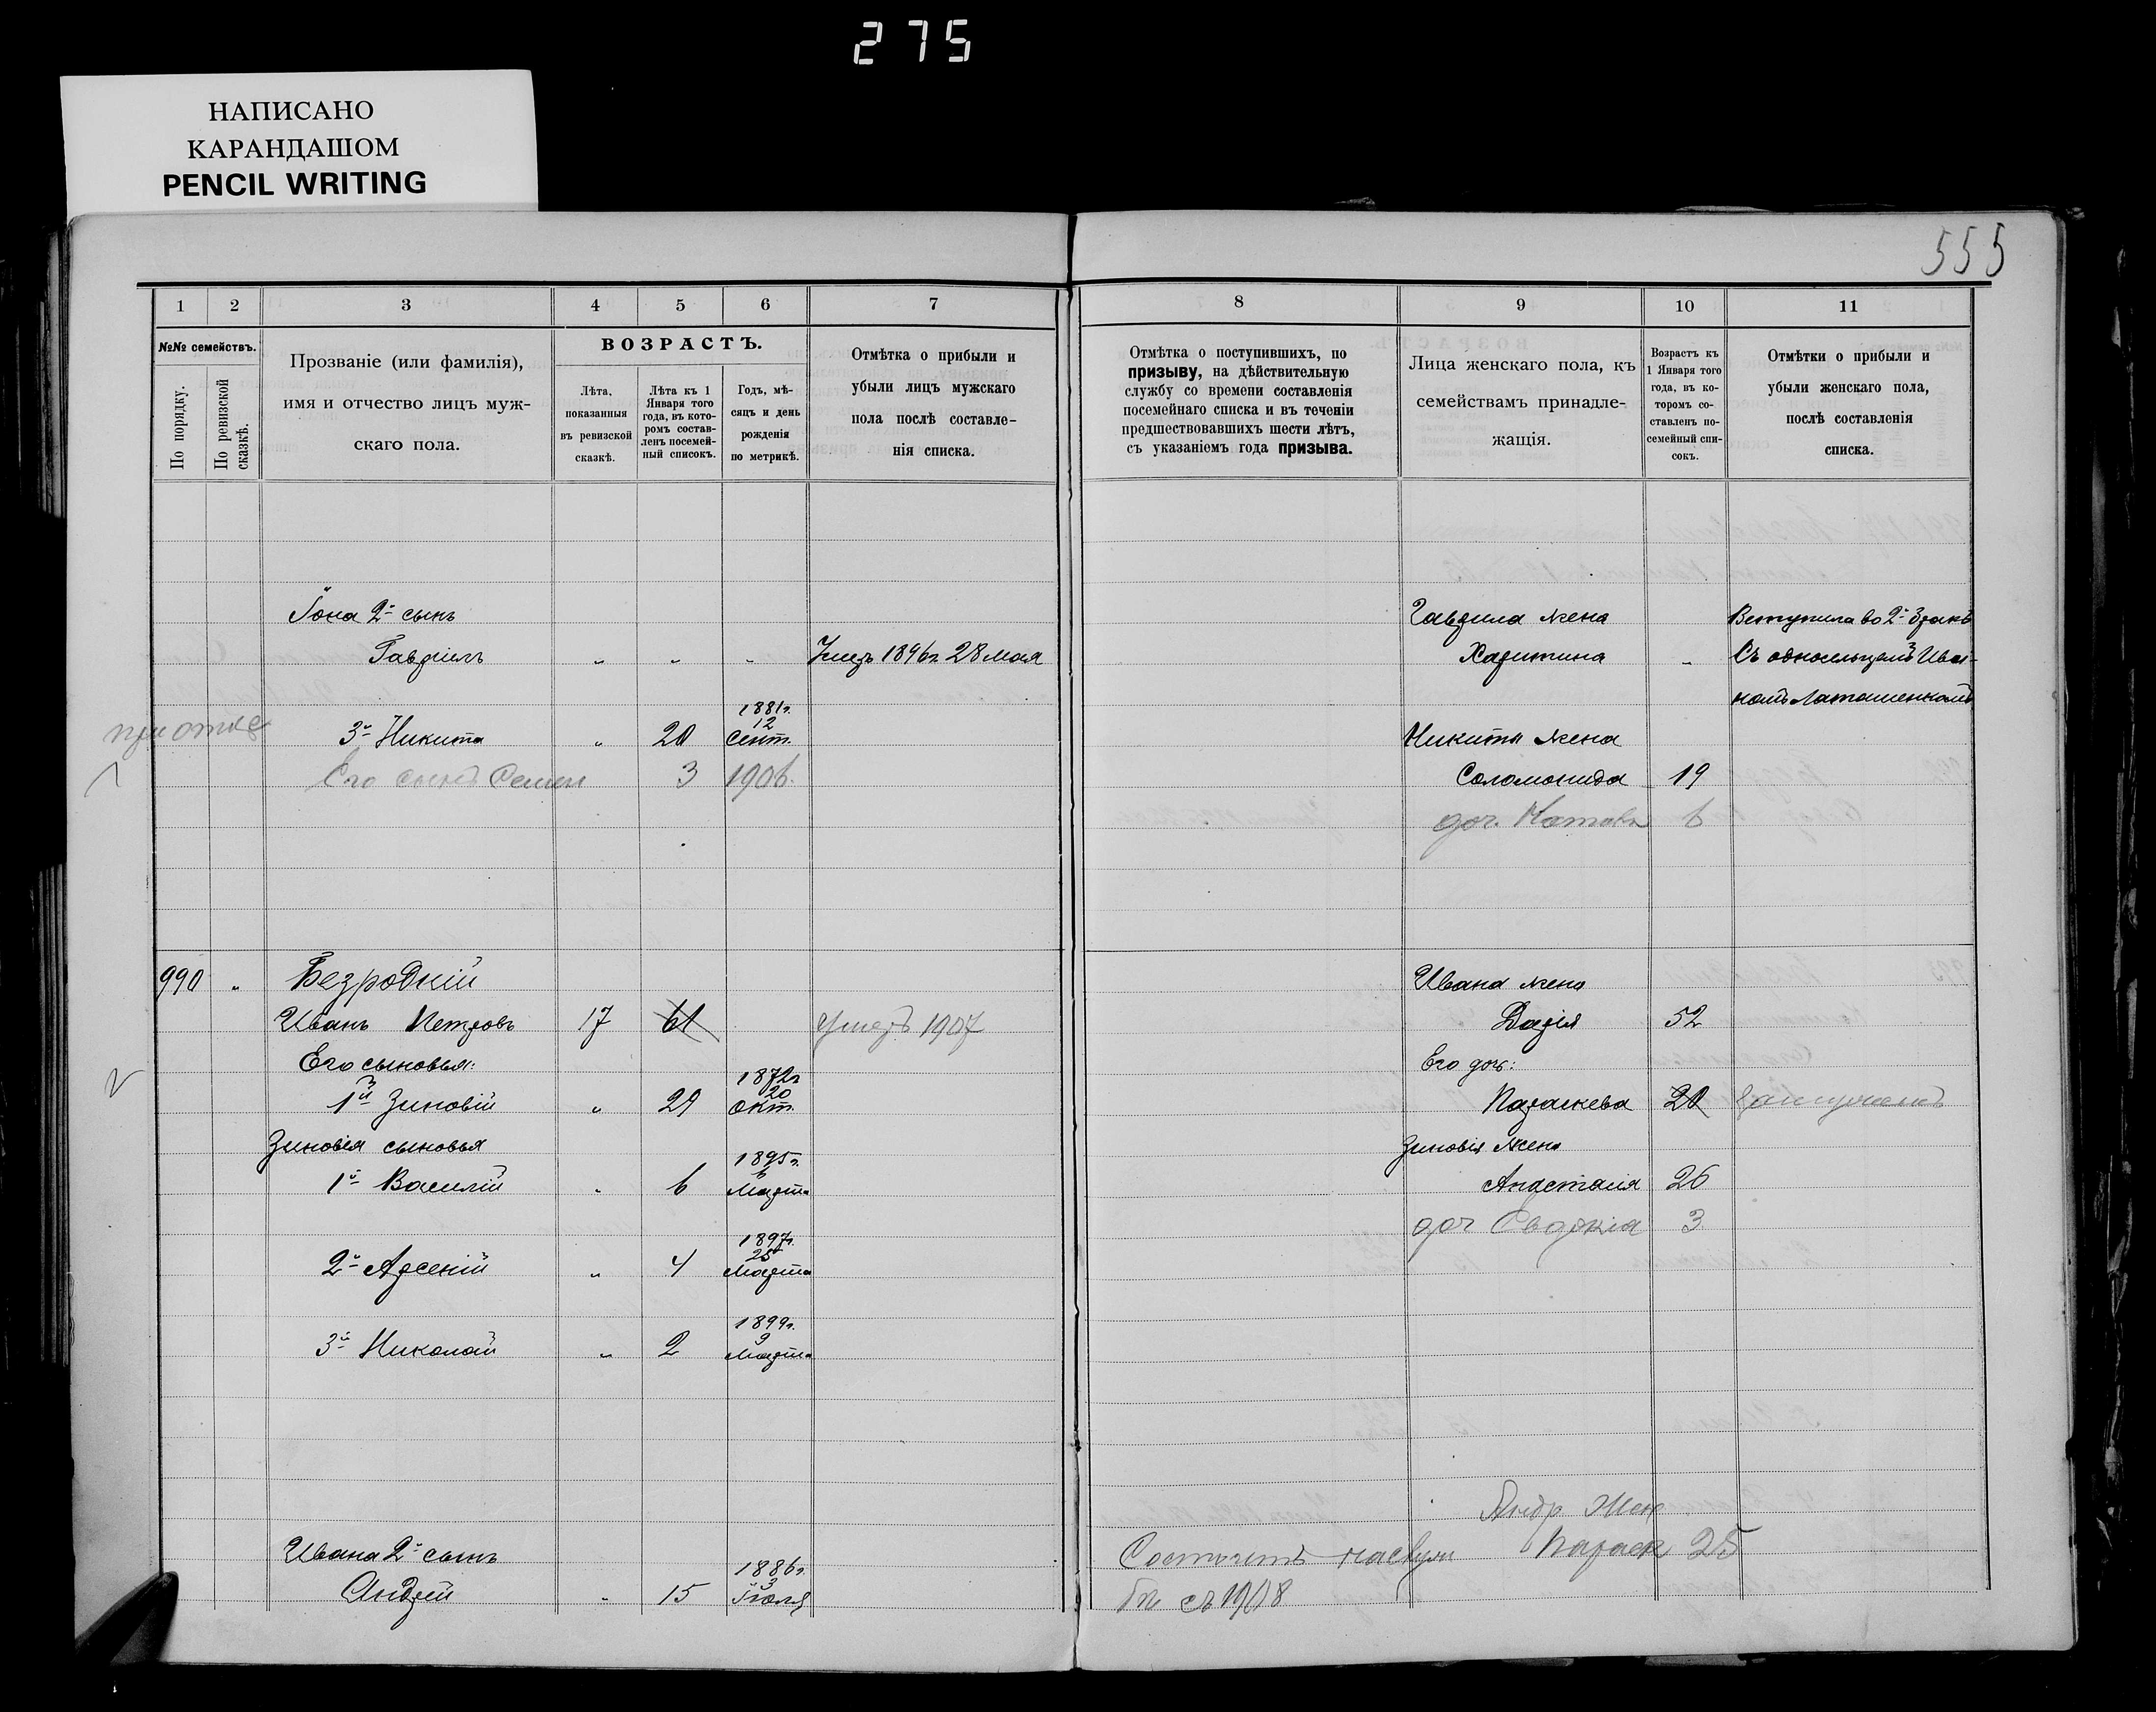 275
НАПИСАНО
КАРАНДАШОМ
PENCIL WRITING
555
1 2 3 4 5 6 7
№№ семействъ.
По порядку.
По ревизской сказкѣ.
Прозваніе (или фамилія),
имя и отчество лицъ муж-
скаго пола.
ВОЗРАСТЪ.
Лѣта,
показанныя
въ ревизской
сказкѣ.
Лѣта къ 1
Января того
года, въ кото-
ромъ состав-
ленъ посемей-
ный списокъ.
Годъ, мѣ-
сяцъ и день
рожденія
по метрикѣ.
Отмѣтка о прибыли и
убыли лицъ мужскаго
пола послѣ составле-
нія списка.
Іона 2й сынъ
Гавріилъ " " " Умеръ 1896г. 28 мая
при отце
3й Никита " 20 1881г. 12 Сент.
Его сынъ Семен 3 1906.
990 " Безродній
Иванъ Петровъ 17 61 Умеръ 1907
Его сыновья:
1й Зиновій " 29 1872г 20 Окт.
Зиновія сыновья
1й Василій " 6 1895г. Марта
2й Арсеній " 4 1897г. 25 Марта
3й Николай " 2 1899г. 9 Марта
Ивана 2й сынъ
Андрей " 15 1886г. 3 Іюля
8 9 10 11
Отмѣтка о поступившихъ, по
призыву, на дѣйствительную
службу со времени составленія
посемейнаго списка и въ теченіи
предшествовавшихъ шести лѣтъ,
съ указаніемъ года призыва.
Лица женскаго пола, къ
семействамъ принадле-
жащія.
Возрастъ къ
1 Января того
года, въ ко-
торомъ со-
ставленъ по-
семейный спи-
сокъ.
Отмѣтки о прибыли и
убыли женскаго пола,
послѣ составленія
списка.
Гаврила жена Вступила во 2й бракъ
Харитина " Съ односельцемъ Ива-
номъ
Никиты жена
Соломонида 19
доч. 6
Ивана жена
Дарія 52
Его доч:
Параскева 20 Замужемъ
Зиновія жена
Анастасія 26
доч Евдокія 3
Андр Жен
Состоитъ Параск 25
съ 1908